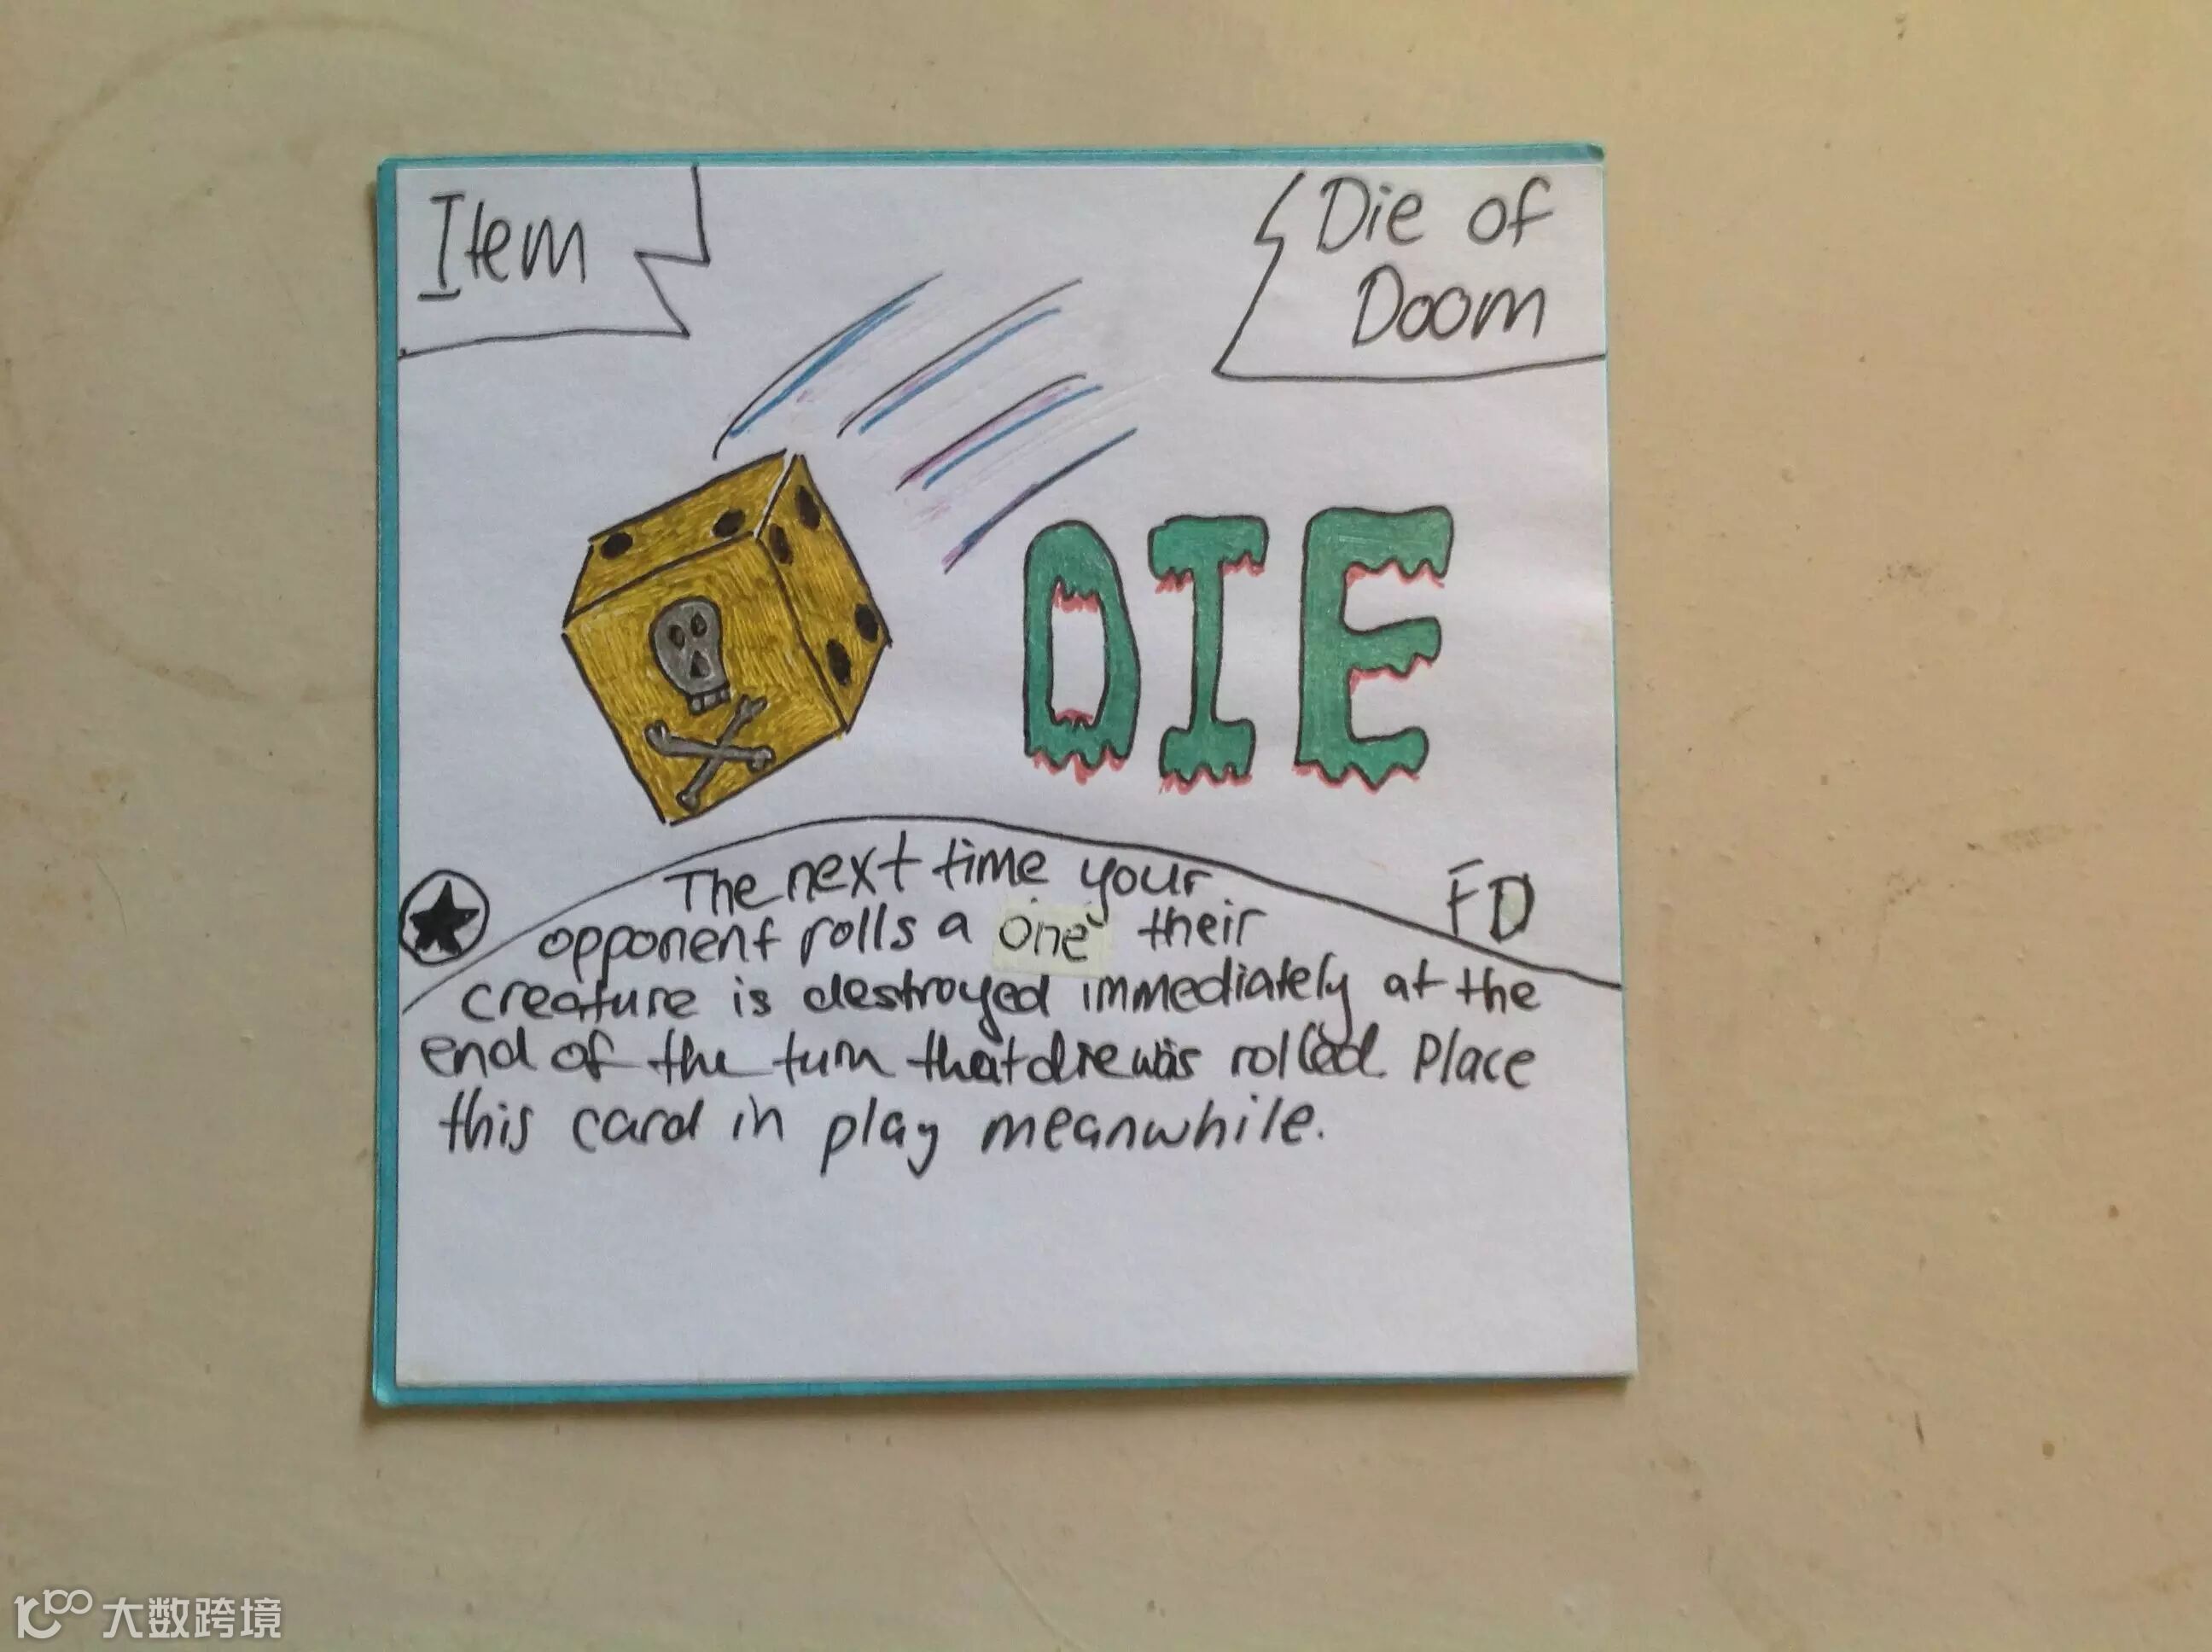 Item
Die of
Doom
DIE
The next time your
opponent rolls a one their
creature is destroyed immediately at the
end of the turn that die was rolled. Place
this card in play meanwhile.
FD
大数跨境